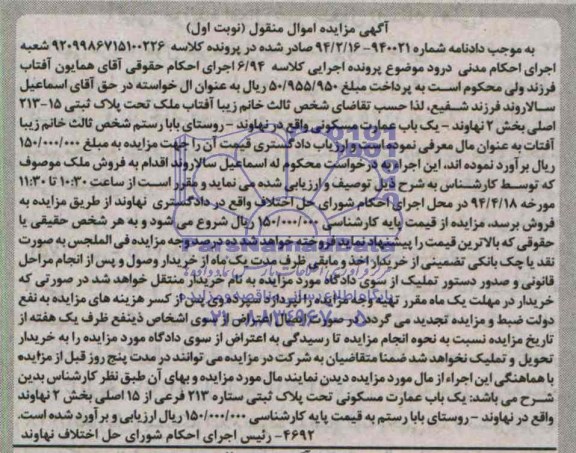 آگهی مزایده اموال منقول (نوبت اول)
به موجب دادنامه شماره ۹۴۰۰۲۱-۹۴/۲/۱۶ صادر شده در پرونده کلاسه ۹۲۰۹۹۸۶۷۱۵۱۰۰۲۲۶ شعبه
اجرای احکام مدنی درود موضوع پرونده اجرایی کلاسه ۶/۹۴ اجرای احکام حقوقی آقای همایون آفتاب
فرزند ولی محکوم است به پرداخت مبلغ ۵۰/۹۵۵/۹۵۰ ریال به عنوان ال خواسته در حق آقای اسماعیل
سالاروند فرزند شفیع، لذا حسب تقاضای شخص ثالث خانم زیبا آفتاب ملک تحت پلاک ثبتی ۱۵-۲۱۳
اصلی بخش ۲ نهاوند - یک باب عمارت مسکونی واقع در نهاوند - روستای بابا رستم شخص ثالث خانم زیبا
آفتاب به عنوان مال معرفی نموده است و ارزیاب دادگستری قیمت آن را جهت مزایده به مبلغ ۱۵۰/۰۰۰/۰۰۰
ریال برآورد نموده اند، این اجراء به درخواست محکوم له اسماعیل سالاروند اقدام به فروش ملک موصوف
که توسط کارشناس به شرح ذیل توصیف و ارزیابی شده می نماید و مقرر است از ساعت ۱۰:۳۰ تا ۱۱:۳۰
مورخه ۹۴/۴/۱۸ در محل اجرای احکام شورای حل اختلاف واقع در دادگستری نهاوند از طریق مزایده به
فروش برسد، مزایده از قیمت پایه کارشناسی ۱۵۰/۰۰۰/۰۰۰ ریال شروع می شود و به هر شخص حقیقی یا
حقوقی که بالاترین قیمت را پیشنهاد نماید فروخته خواهد شد ده درصد وجه مزایده فی المجلس به صورت
نقد یا چک بانکی تضمینی از خریدار اخذ و مابقی ظرف مدت یک ماه از خریدار وصول و پس از انجام مراحل
قانونی و صدور دستور تملیک از سوی دادگاه مورد مزایده به نام خریدار منتقل خواهد شد در صورتی که
خریدار در مهلت یک ماه مقرر بهای را نپردازد سپرده وی پس از کسر هزینه های مزایده به نفع
دولت ضبط و مزایده تجدید می گردد در صورت اعتراض از سوی اشخاص ذینفع ظرف یک هفته از
تاریخ مزایده نسبت به نحوه انجام مزایده تا رسیدگی به اعتراض از سوی دادگاه مورد مزایده را به خریدار
تحویل و تملیک نخواهد شد ضمنا متقاضیان به شرکت در مزایده می توانند در مدت پنج روز قبل از مزایده
با هماهنگی این اجراء از مال مورد مزایده دیدن نمایند مال مورد مزایده و بهای آن طبق نظر کارشناس بدین
شرح می باشد: یک باب عمارت مسکونی تحت پلاک ثبتی ستاره ۲۱۳ فرعی از ۱۵ اصلی بخش ۲ نهاوند
واقع در نهاوند - روستای بابا رستم به قیمت پایه کارشناسی ۱۵۰/۰۰۰/۰۰۰ ریال ارزیابی و برآورد شده است.
۴۶۹۲- رئیس اجرای احکام شورای حل اختلاف نهاوند